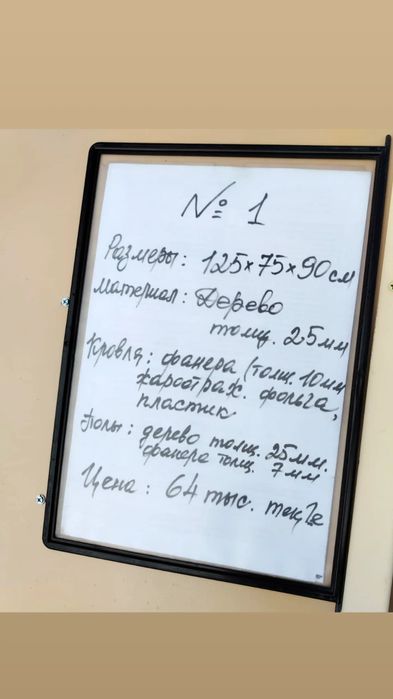 № 1
Размеры: 125×75×90см
Материал: Дерево
толщ. 25мм
Кровля: фанера (толщ. 10мм
жароотраж. фольга,
пластик
Полы: дерево толщ. 25мм.
фанера толщ. 7мм
Цена: 64 тыс. тенге